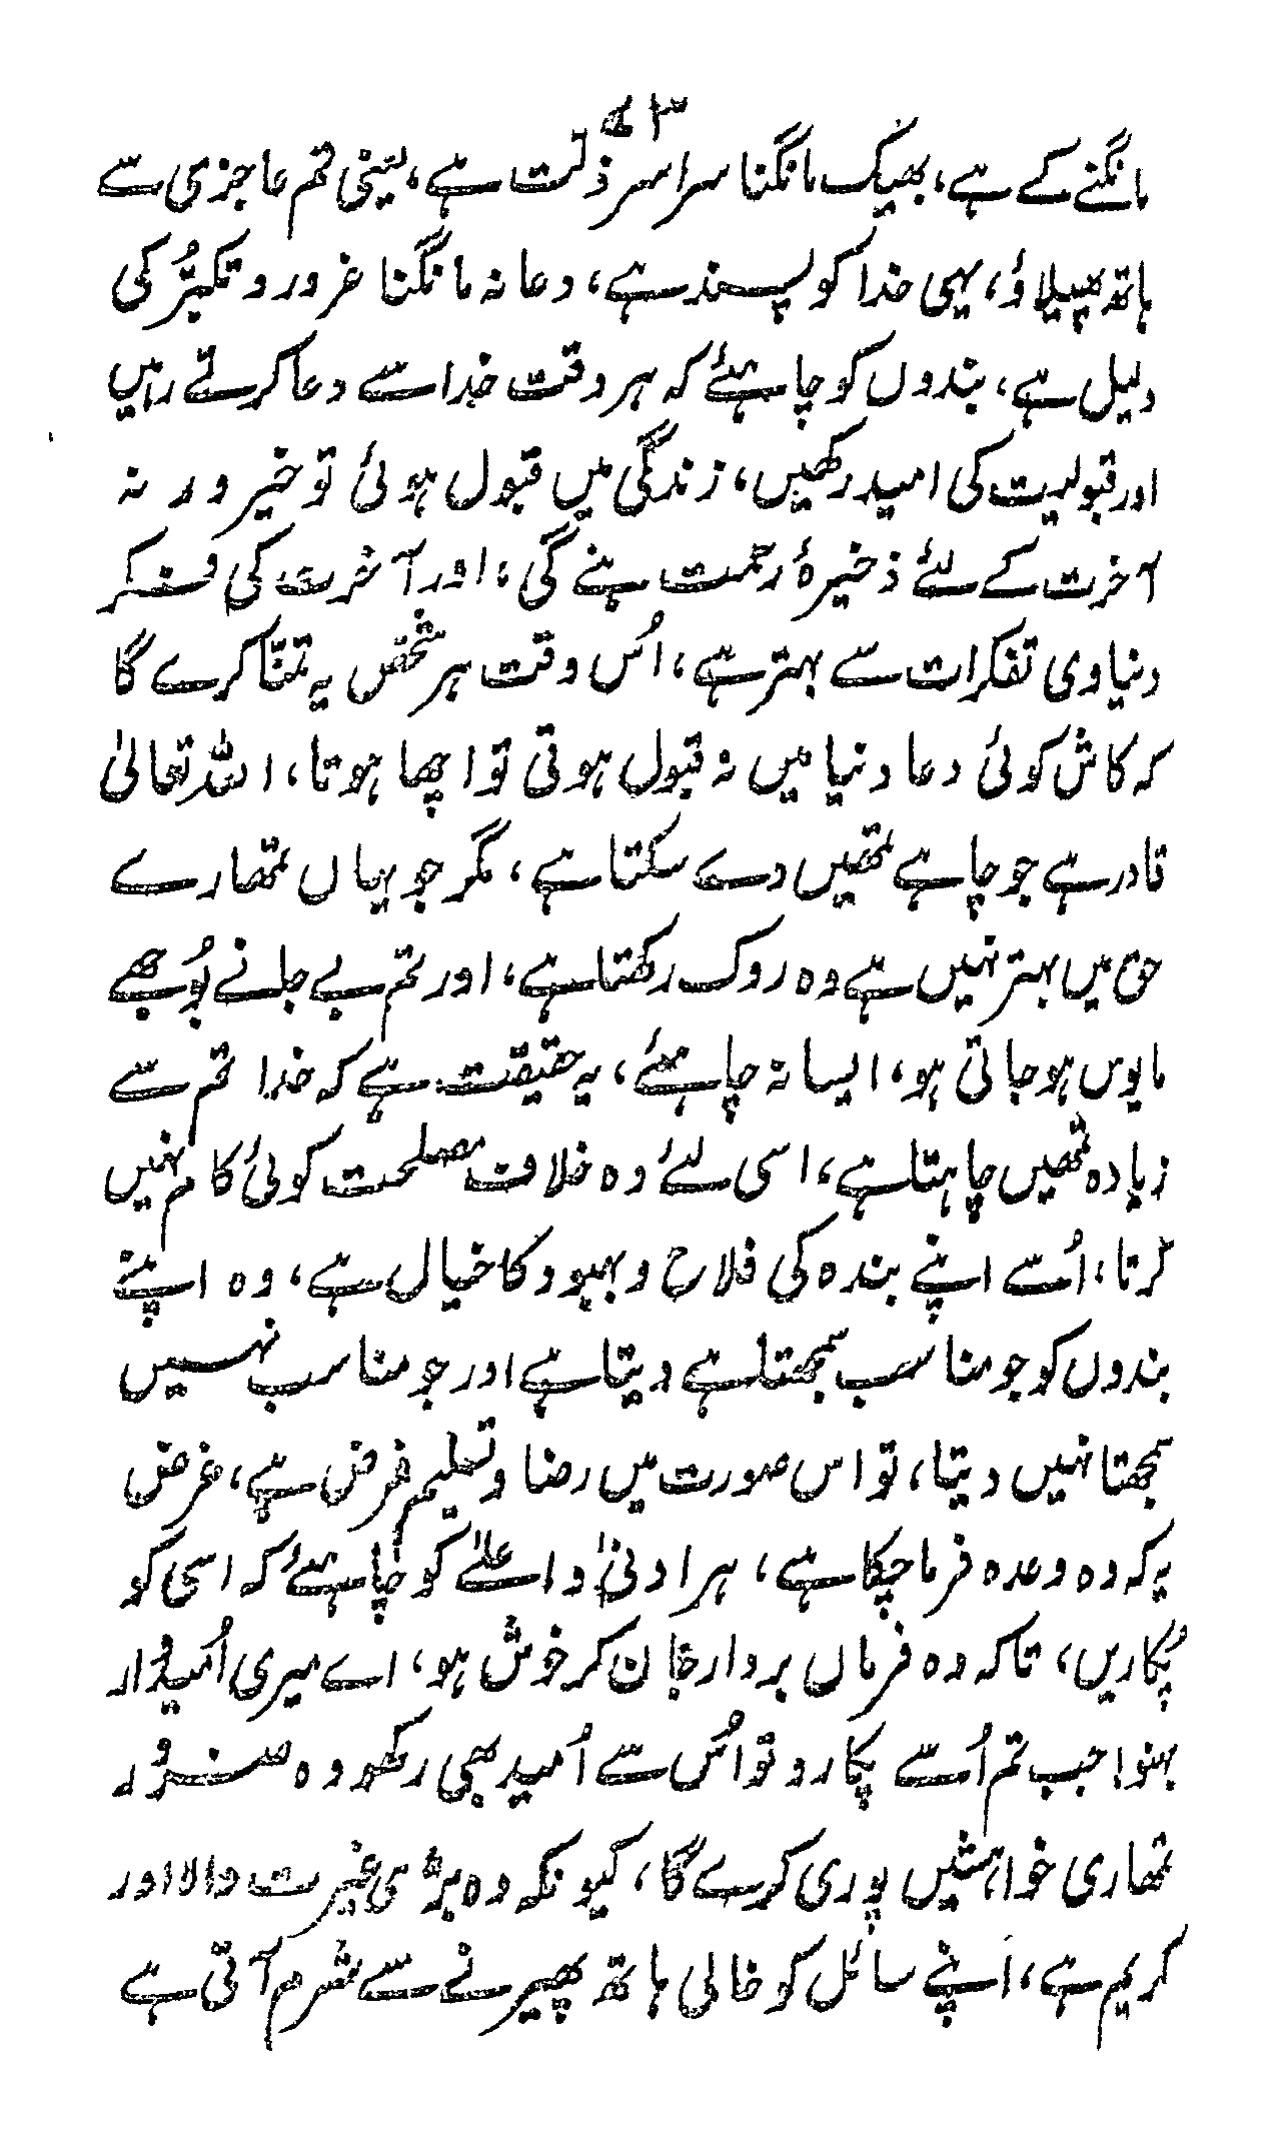 ۴۳
مانگنے کے ہے، بھیک مانگنا سراسر ذلت ہے، یعنی تم عاجزی سے
ہاتھ پھیلاؤ، یہی خدا کو پسند ہے، دعا نہ مانگنا غرور و تکبّر کی
دلیل ہے، بندوں کو چاہئے کہ ہر وقت خدا سے دعا کرتے رہیں
اور قبولیت کی امید رکھیں، زندگی میں قبول ہوئی تو خیر ورنہ
آخرت کے لئے ذخیرۂ رحمت بنے گی، اور آخرت کی فکر
دنیاوی تفکرات سے بہتر ہے، اُس وقت ہر شخص یہ تمنّا کرے گا
کہ کاش کوئی دعا دنیا میں نہ قبول ہوتی تو اچھا ہوتا، اللہ تعالیٰ
قادر ہے جو چاہے تمھیں دے سکتا ہے، مگر جو یہاں تمھارے
حق میں بہتر نہیں ہے وہ روک رکھتا ہے، اور تم بے جانے بُوجھے
مایوس ہو جاتی ہو، ایسا نہ چاہئے، یہ حقیقت ہے کہ خدا تم سے
زیادہ تمھیں چاہتا ہے، اسی لئے وہ خلاف مصلحت کوئی کام نہیں
کرتا، اُسے اپنے بندہ کی فلاح و بہبود کا خیال ہے، وہ اپنے
بندوں کو جو مناسب سمجھتا ہے دیتا ہے اور جو مناسب نہیں
سمجھتا نہیں دیتا، تو اس صورت میں رضا و تسلیم فرض ہے، غرض
یہ کہ وہ وعدہ فرما چکا ہے، ہر ادنیٰ و اعلےٰ کو چاہئے کہ اسی کو
پُکاریں، تاکہ وہ فرماں بردار جان کر خوش ہو، اے میری اُمیدوار
بہنو! جب تم اُسے پکارو تو اُس سے اُمید بھی رکھو وہ ضرور
تمھاری خواہشیں پوری کرے گا، کیونکہ وہ بڑی غیرت والا اور
کریم ہے، اپنے سائل کو خالی ہاتھ پھیرنے سے شرم آتی ہے